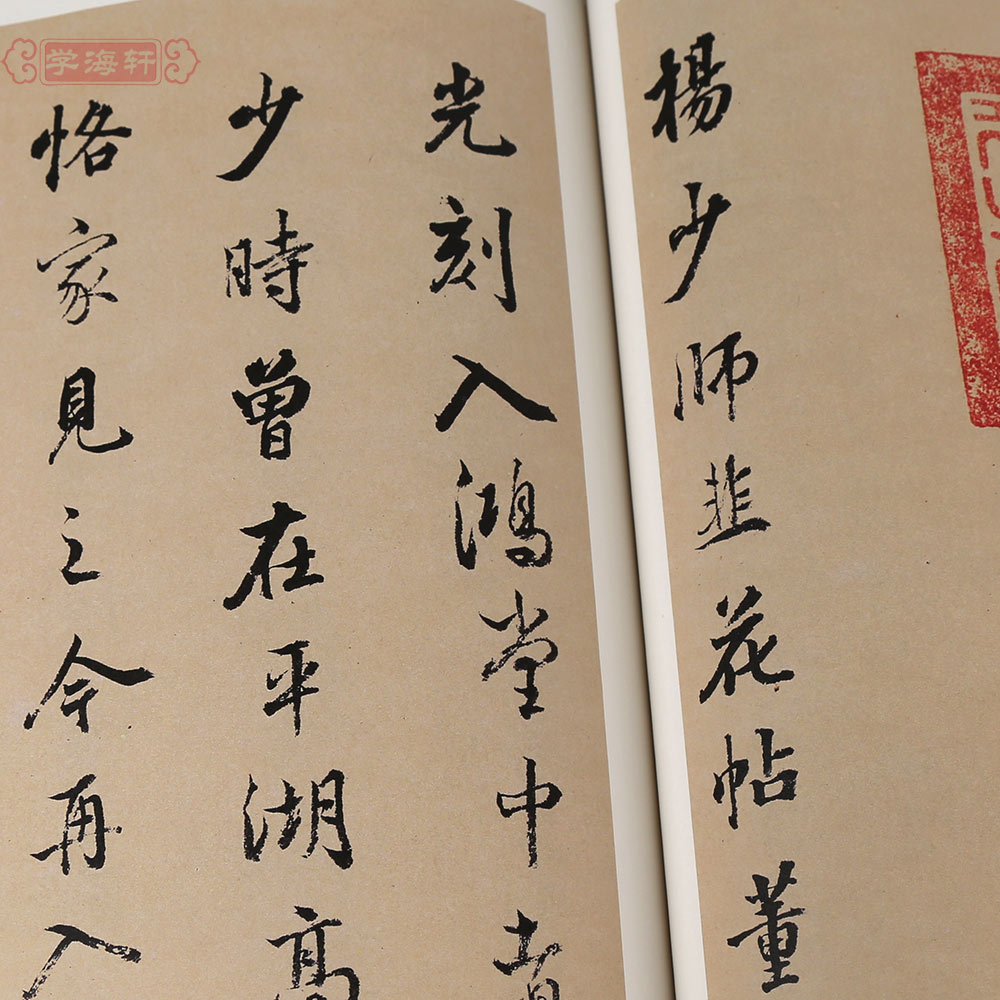 学海轩
楊少師韭花帖董
光刻入鴻堂中
少時曾在平湖高
恪家見之今再入